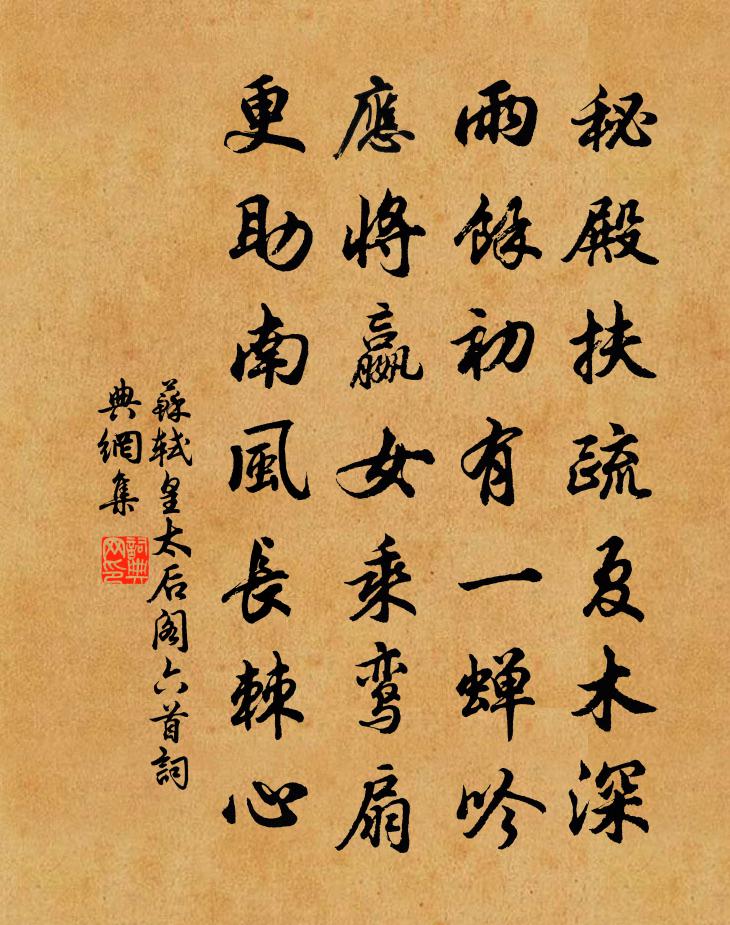 秘殿扶疏夏木深
雨餘初有一蝉吟
應将嬴女乘鸾扇
更助南風長棘心
蘇軾皇太后阁六首詞
典網集
詞典网印